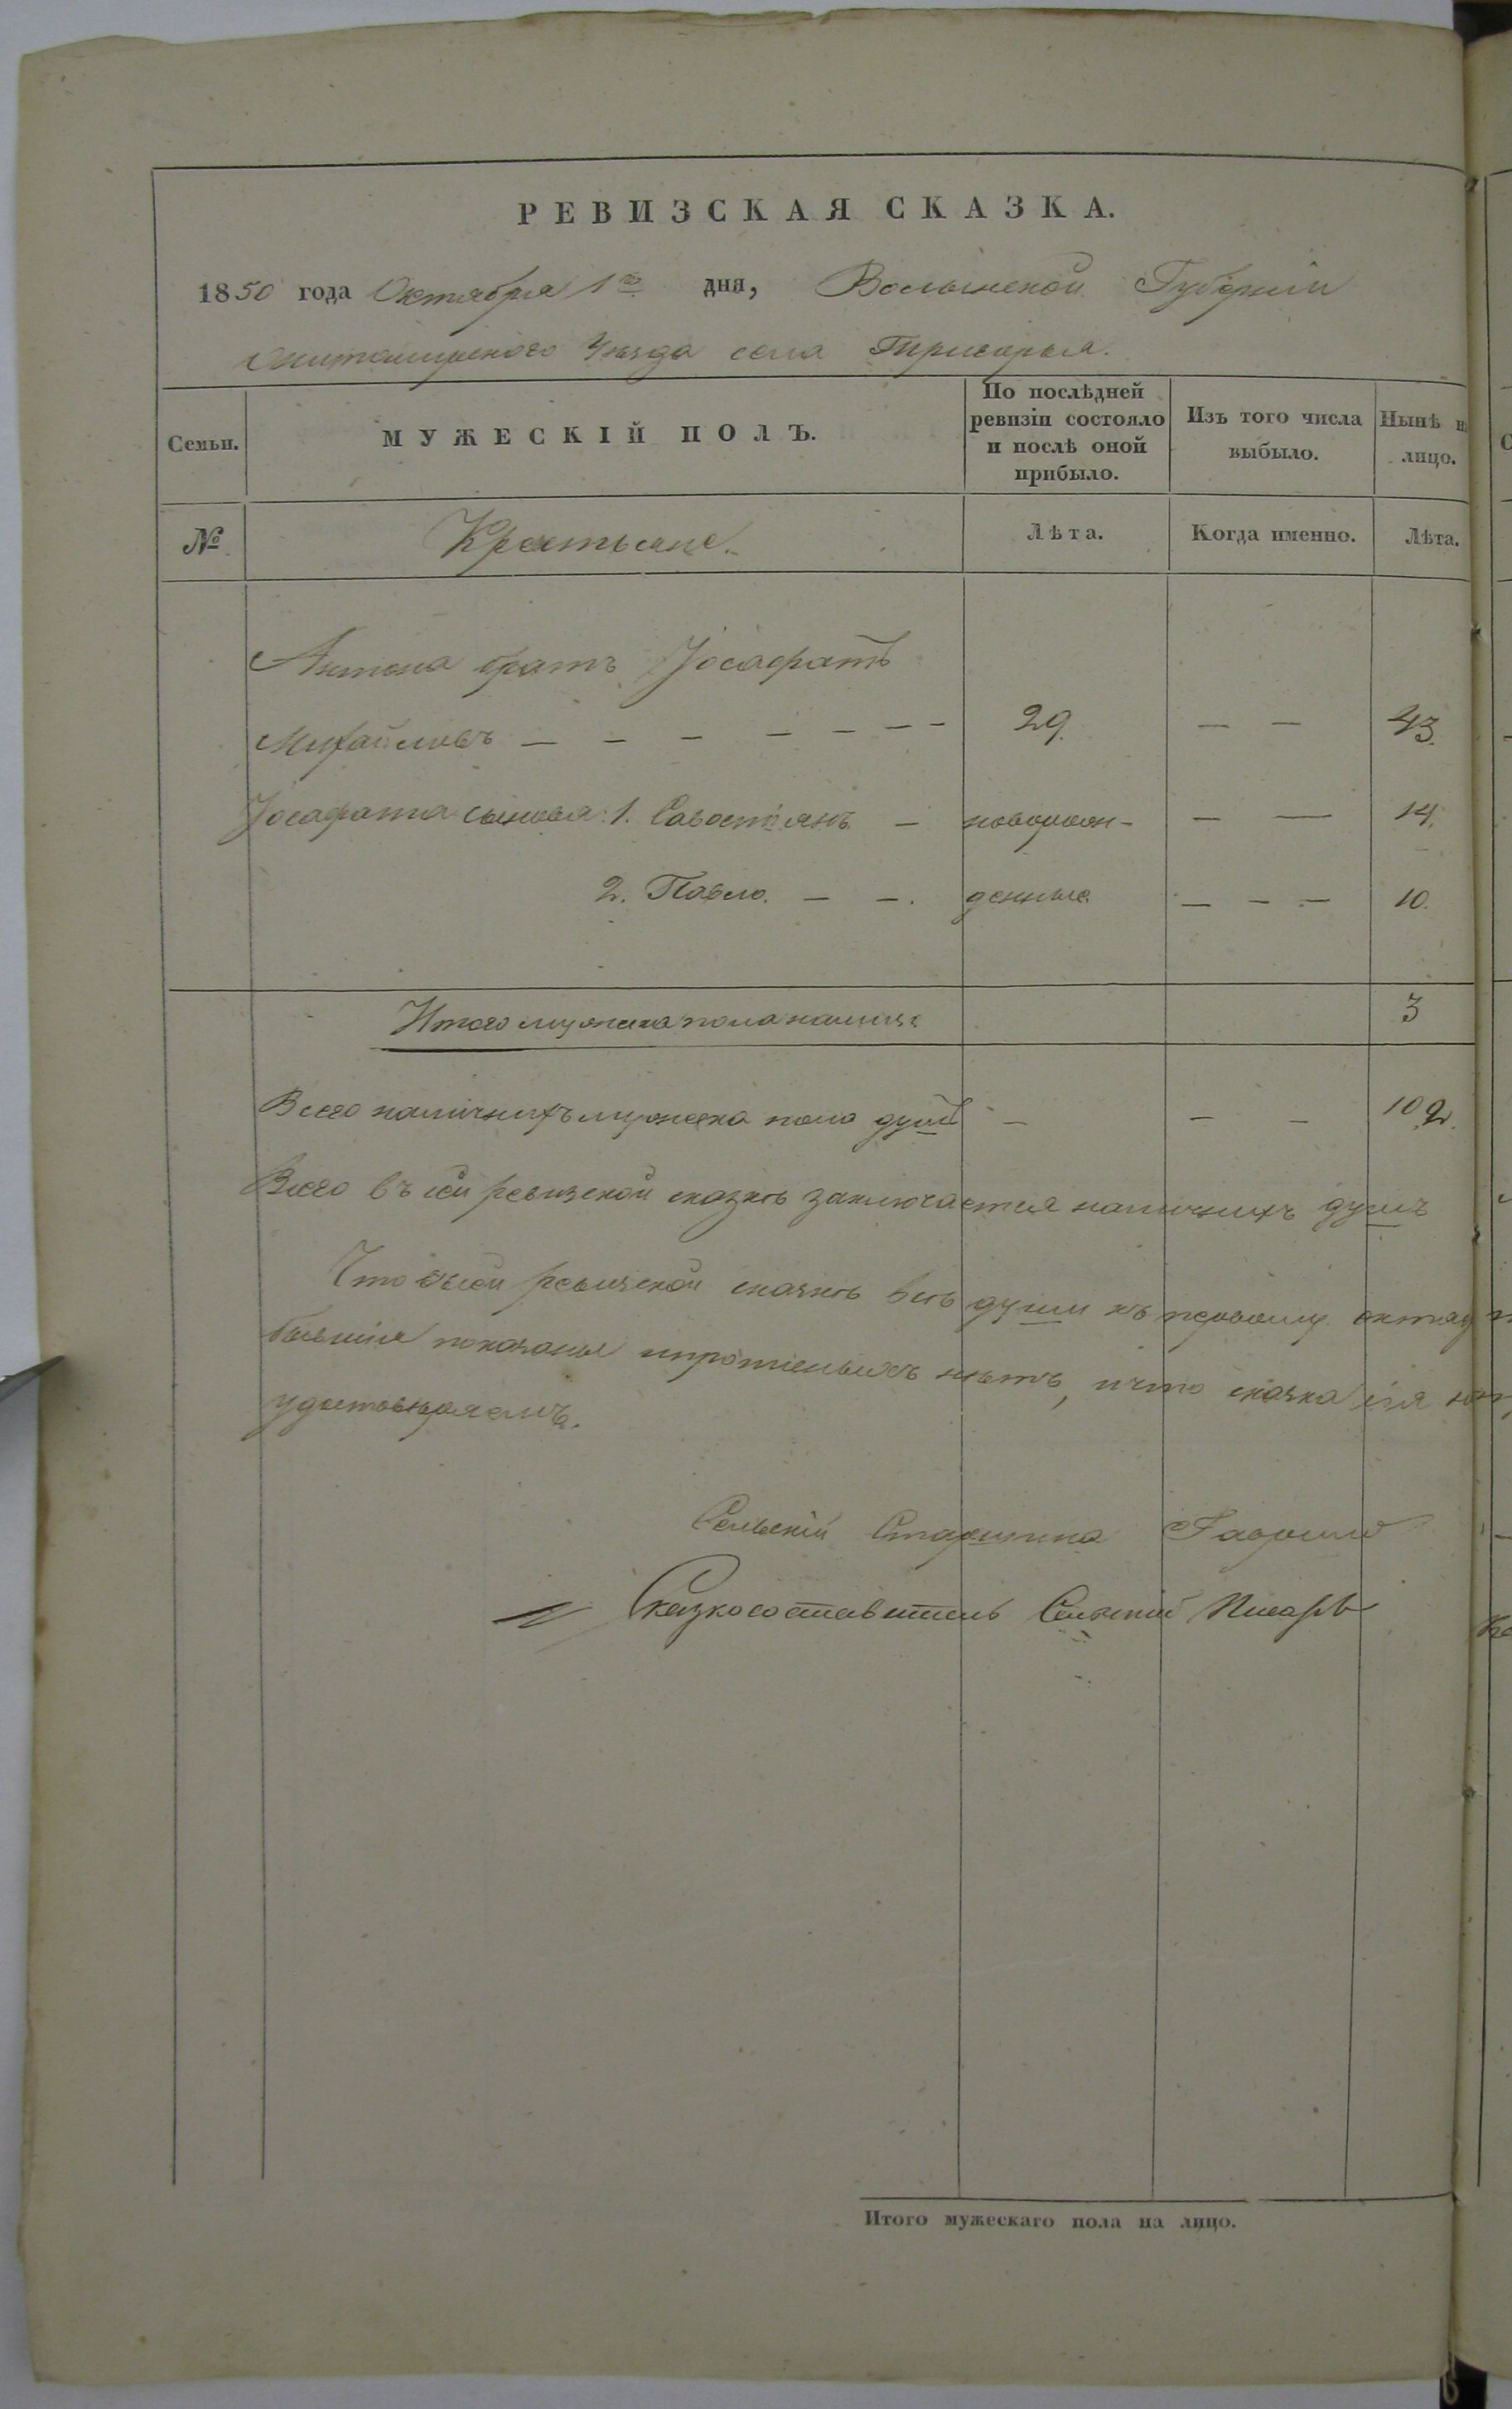 РЕВИЗСКАЯ СКАЗКА.
1850 года Октября 1го дня, Волынской Губерніи
Житомирского Уѣзда села Тригорья.
Семьи.
МУЖЕСКІЙ ПОЛЪ.
По послѣдней ревизіи состояло и послѣ оной прибыло.
Изъ того числа выбыло.
Нынѣ на лицо.
№
Крестьяне.
Лѣта.
Когда именно.
Лѣта.
Антона братъ Іосафатъ
Михайловъ — — — — — — — 29. — — 43.
Іосафата сыновья: 1. Савостіянъ — новорож- — — 14.
2. Павло. — —. денные — — — 10.
Итого мужеска пола налицо 3
Всего наличныхъ мужеска пола душъ — — — 102.
Всего въ сей ревизской сказкѣ заключается наличныхъ душъ
Что въ сей ревизской сказкѣ всѣ души къ первому октяб
бывшія показаны и прописныхъ нѣтъ, и что сказка сія
удостовѣряемъ.
Сельскій Старшина Гаврило
Сказкосоставитель Сельскій Писарь
Итого мужескаго пола на лицо.